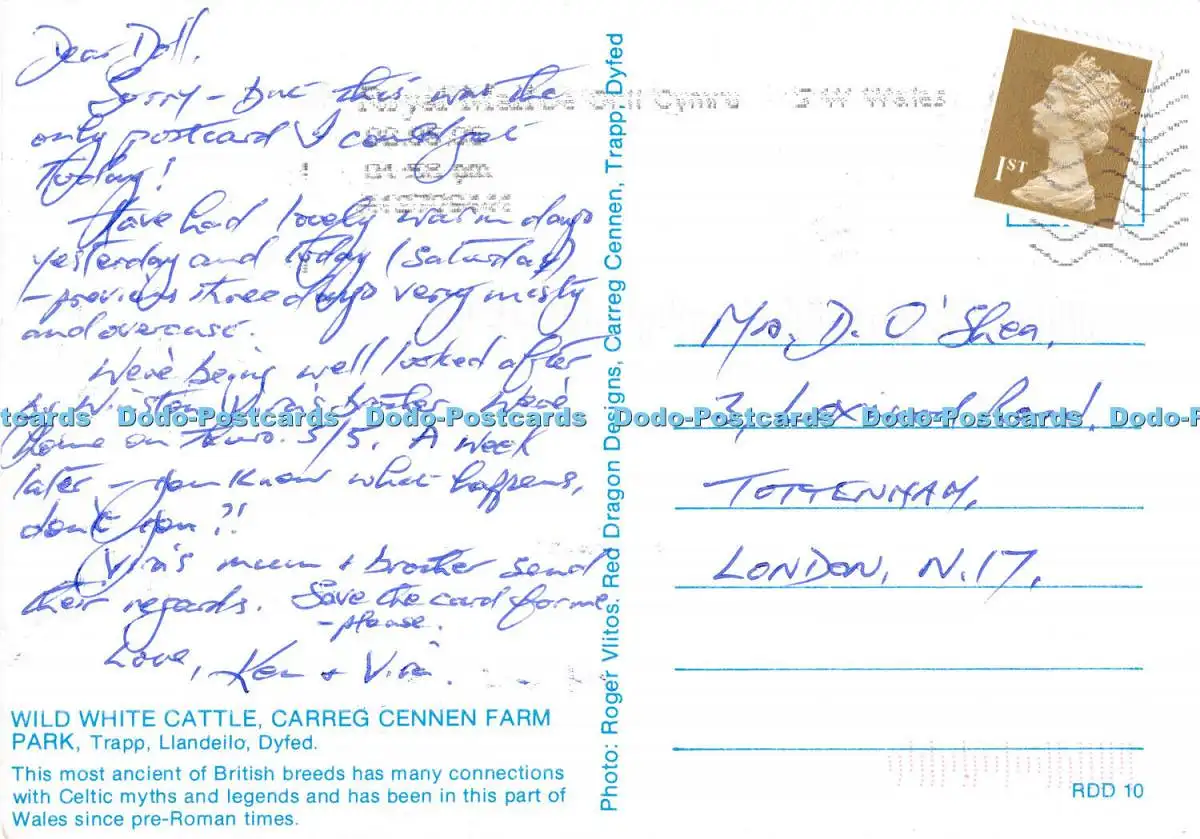 Dear Doll,
Sorry - but this was the
only postcard I could get
today!
Have had lovely warm days
yesterday and today (Saturday)
- previous three days very misty
and overcast.
We're being well looked after
by Winston, Vira's brother. We're
home on 5/5. A week
later - you know what happens,
don't you?!
Vira's mum + brother send
their regards. Save the card for me
- please.
Love, Ken + Vira.
WILD WHITE CATTLE, CARREG CENNEN FARM
PARK, Trapp, Llandeilo, Dyfed.
This most ancient of British breeds has many connections
with Celtic myths and legends and has been in this part of
Wales since pre-Roman times.
Photo: Roger Vlitos. Red Dragon Designs, Carreg Cennen, Trapp, Dyfed
Cymru S W Wales
1ST
Mrs. D. O'Shea,
Road,
TOTTENHAM,
LONDON, N.17,
RDD 10
ostcards Dodo-Postcards Dodo-Postcards Dodo-Postcards Dodo-Postcards Dodo-Po